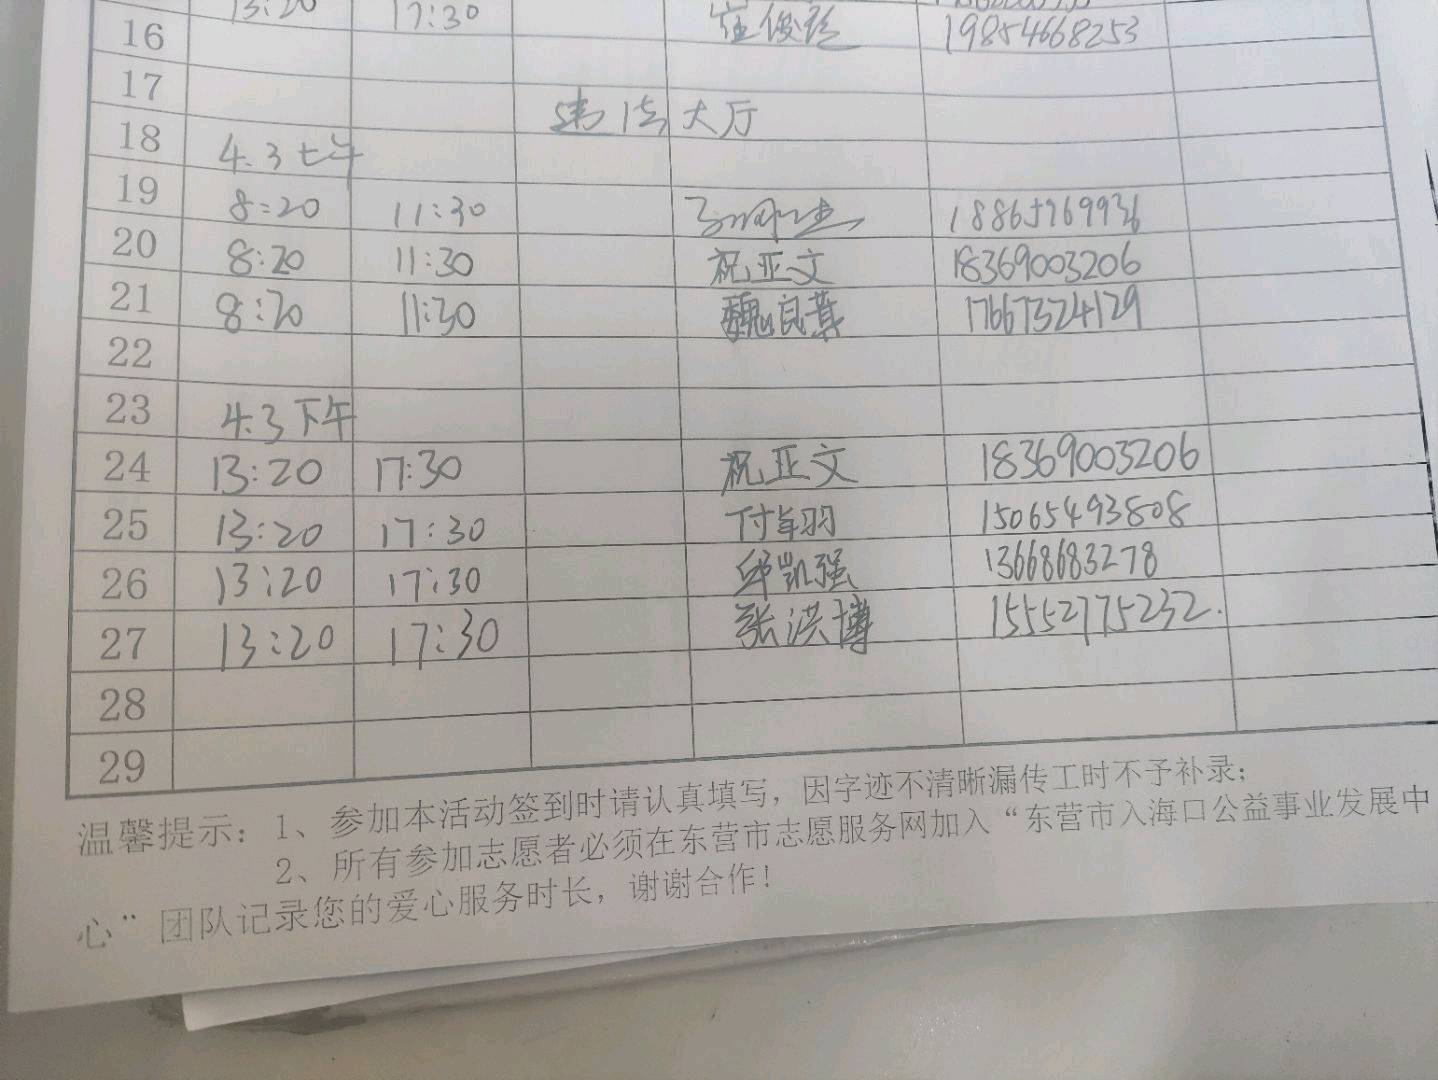 16 13:20 17:30 19854668253
17
违法大厅
18 4.3 上午
19 8:20 11:30 18865769936
20 8:20 11:30 祝亚文 18369003206
21 8:20 11:30 魏良燕 17667324129
22
23 4.3 下午
24 13:20 17:30 祝亚文 18369003206
25 13:20 17:30 15065493808
26 13:20 17:30 邱凯强 13668683278
27 13:20 17:30 张洪博 15552775232.
28
29
温馨提示：1、参加本活动签到时请认真填写，因字迹不清晰漏传工时不予补录；
2、所有参加志愿者必须在东营市志愿服务网加入“东营市入海口公益事业发展中
心”团队记录您的爱心服务时长，谢谢合作！